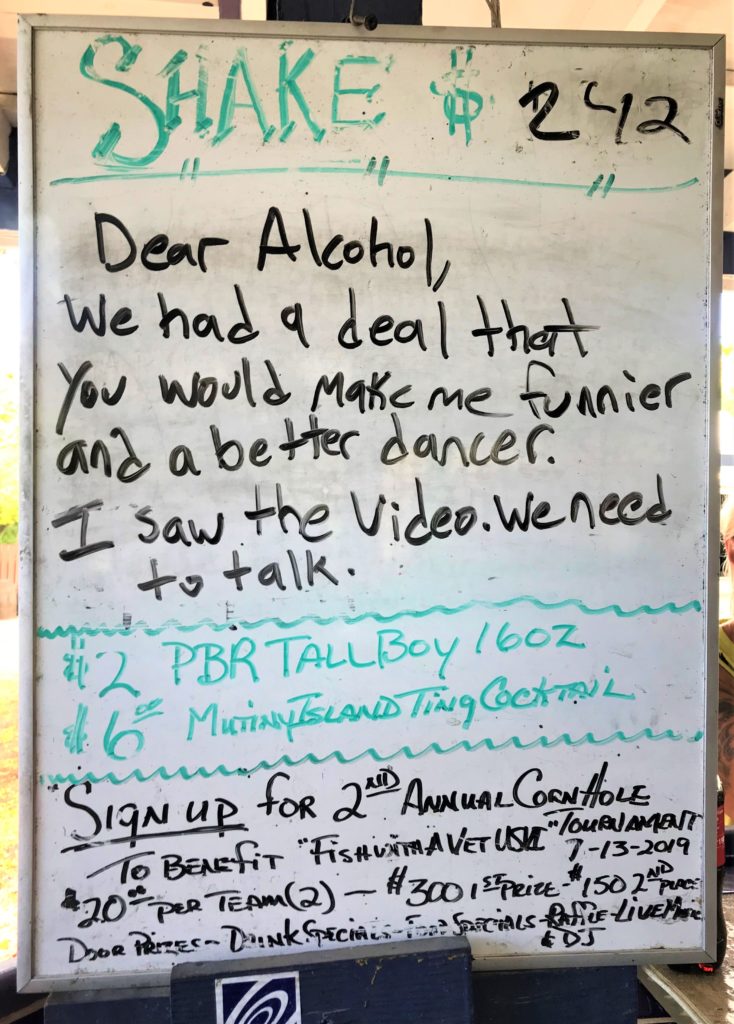 SHAKE $ 242
Dear Alcohol,
We had a deal that
You would make me funnier
and a better dancer.
I saw the Video. We need
to talk.
$2 PBR TALL BOY 16OZ
$6.00 MUTINY ISLAND TING COCKTAIL
SIGN UP FOR 2ND ANNUAL CORN HOLE
TOURNAMENT
TO BENEFIT "FISH WITH A VET USVI" 7-13-2019
$20.00 PER TEAM (2) - $300 1ST PRIZE - $150 2ND PLACE
DOOR PRIZES - DRINK SPECIALS - FOOD SPECIALS - RAFFLE - LIVE MUSIC
& DJ